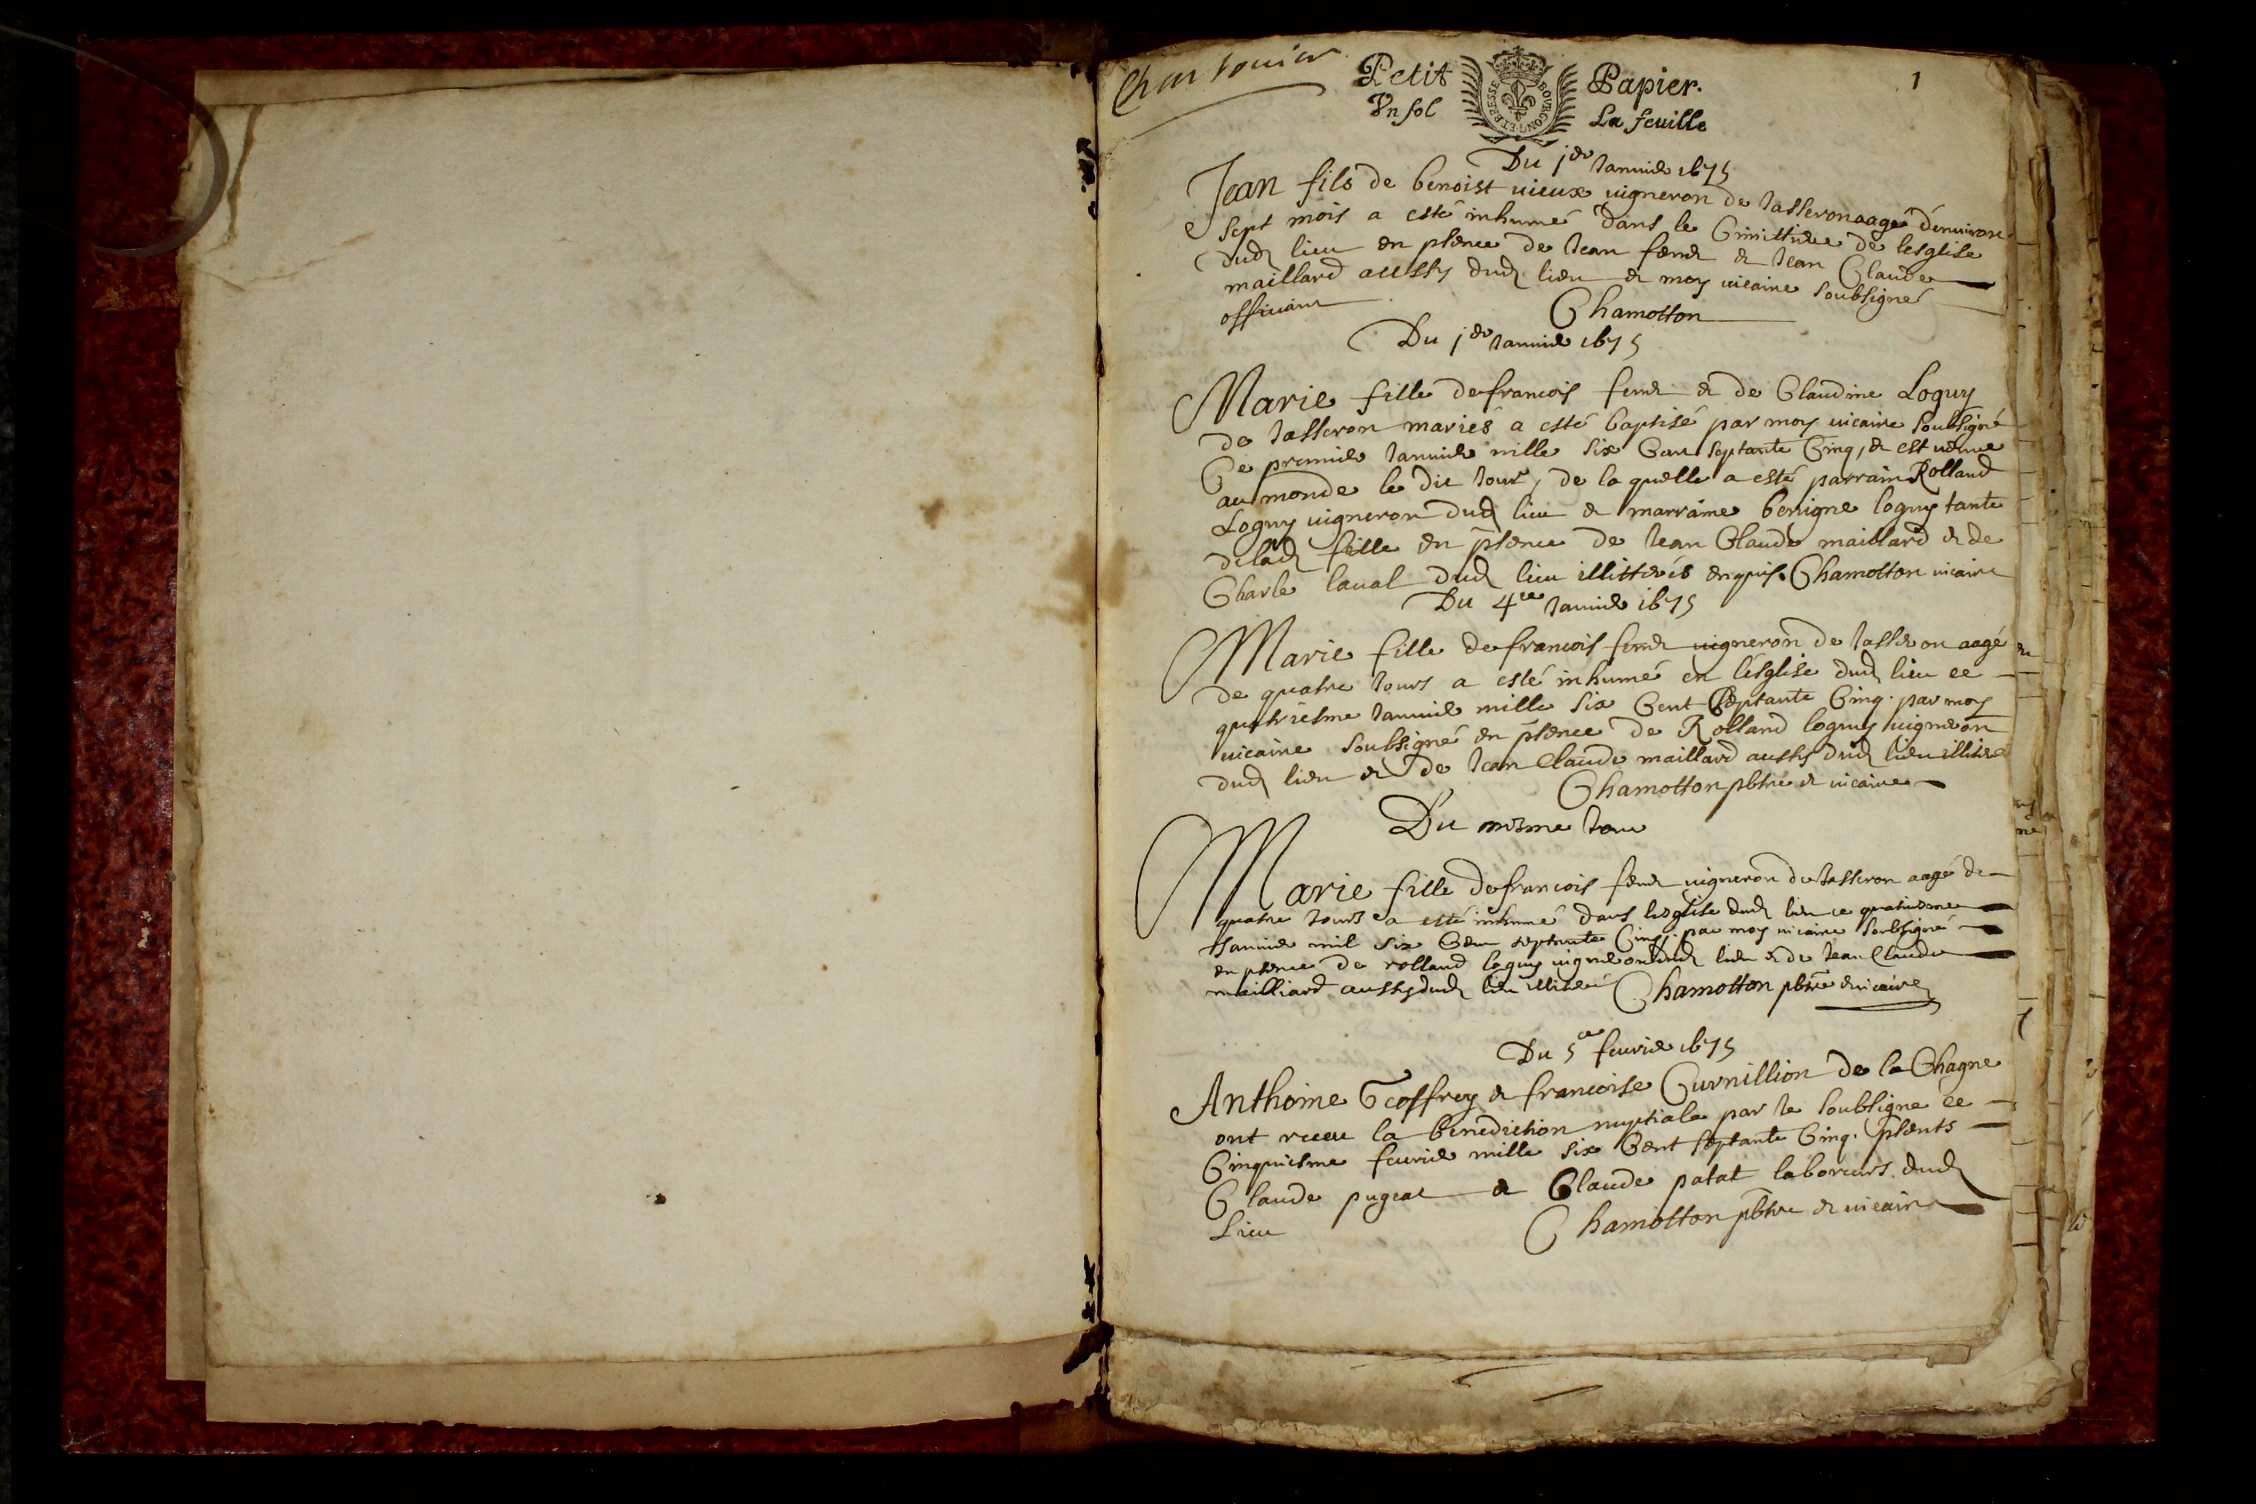 Petit Papier. 1
Vn sol La feuille
BOVRGONG ET BRESSE
Du jer Januier 1675
Jean fils de benoist uieux uigneron de Jasseron aagé d'enuiron
sept mois a esté inhumé dans le Cimittiere de lesglise
dud lieu en pñce de Jean & Jean Claude
maillard aussy dud lieu & moy uicaire soubsigné
officiant Chamotton
Du jer Januier 1675
Marie fille de francois & de Claudine Loguy
de Jasseron mariés a esté baptisé par moy uicaire soubsigné
Ce premier Januier mille six Cent septante Cinq, & est uenue
au monde le dit Jour, de la quelle a esté parrain Rolland
Loguy uigneron dud lieu & marraine benigne loguy tante
delad fille en pñce de Jean Claude maillard & de
Charle laual dud lieu illitterés enquis. Chamotton uicaire
Du 4re Januier 1675
Marie fille de francois uigneron de Jasseron aagé
de quatre Jours a esté inhumé en l'ésglise dud lieu ce
quatriesme Januier mille six Cent Septante Cinq. par moy
uicaire soubsigné en pñce de Rolland loguy uigneron
dud lieu & de Jean Claude maillard aussy dud lieu
Chamotton pbtre & uicaire
Du mesme Jour
Marie fille de francois uigneron de Jasseron aagé de
quatre Jours a esté inhumé dans lesglise dud lieu ce quatriesme
Januier mil six Cent septante Cinq. par moy uicaire soubsigné
en pñce de rolland loguy uigneron dud lieu & de Jean Claude
mailliard aussy dud lieu Chamotton pbtre & uicaire
Du 5e feurier 1675
Anthoine Geoffrey & francoise Curnillion de la Chagne
ont receu la benediction nuptiale par le soubsigné ce
Cinquiesme feurier mille six Cent septante Cinq. pñts
Claude pugeat & Claude patat laboreurs dud
Lieu Chamotton pbtre & uicaire